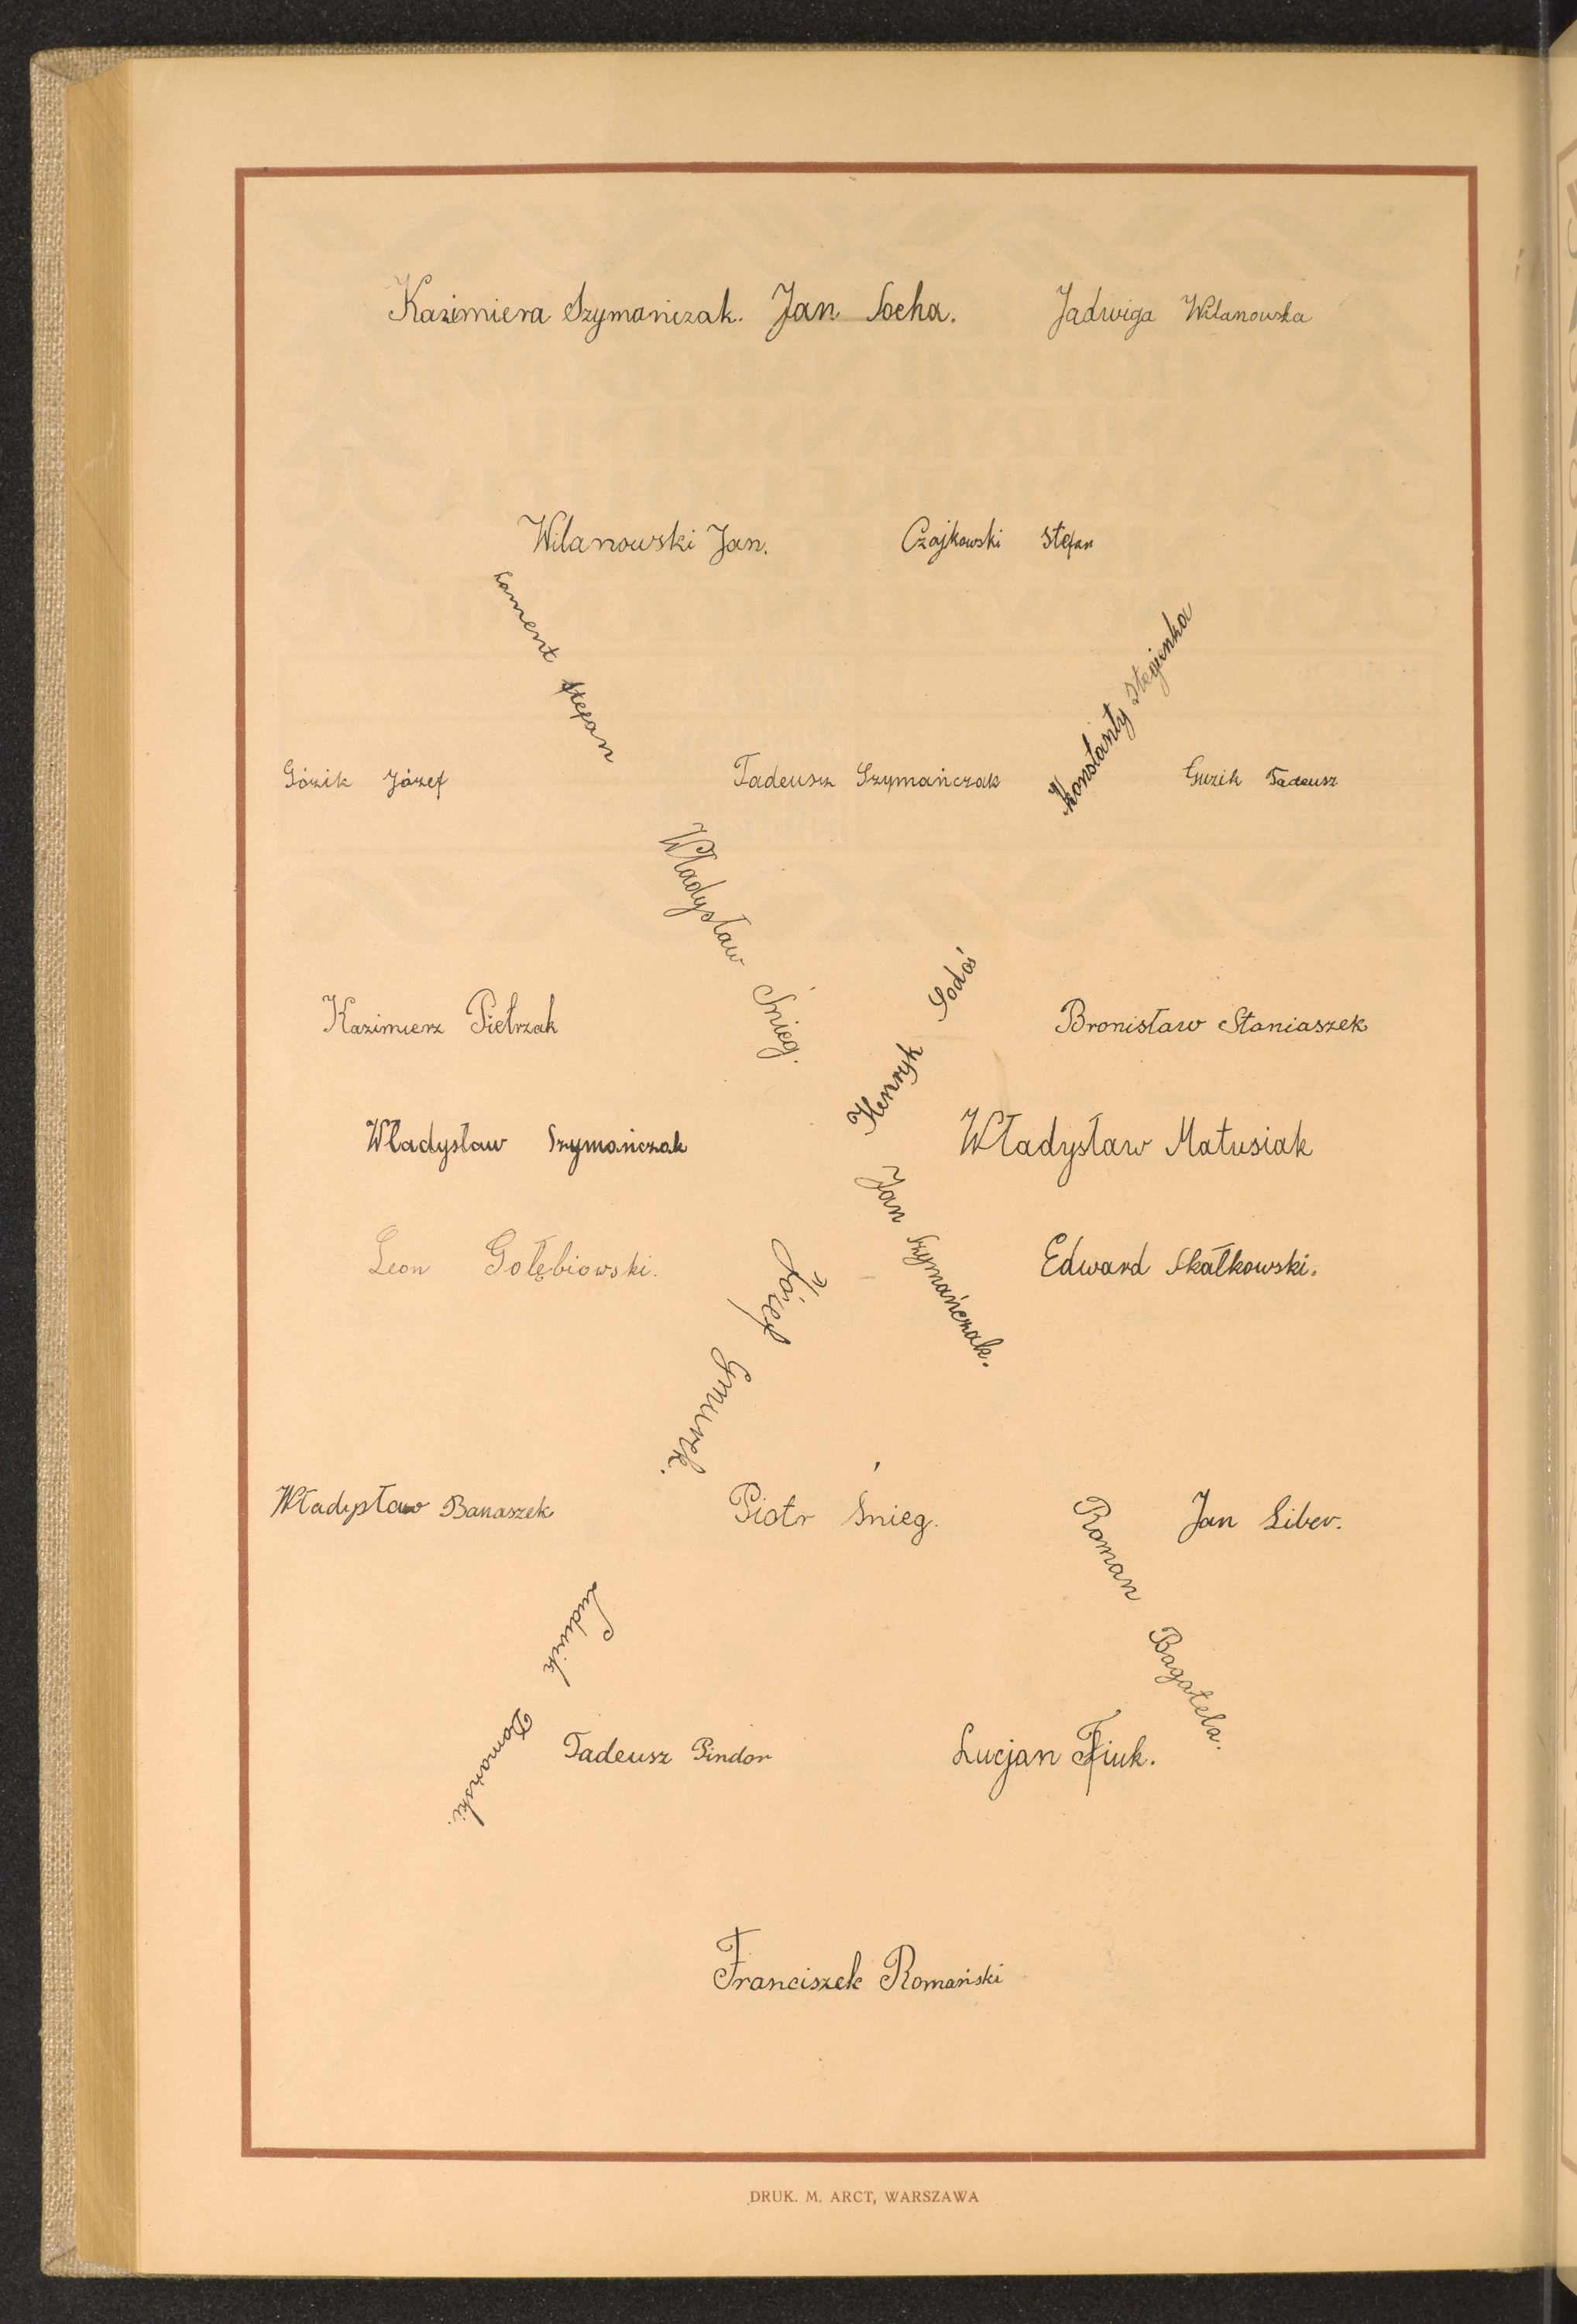 Kazimiera Szymańczak. Jan Socha. Jadwiga Wilanowska
Wilanowski Jan. Czajkowski Stefan
Lament Stefan
Konstanty Stegienka
Górik Józef Tadeusz Szymańczak Guzik Tadeusz
Władysław Śnieg.
Henryk Sodoś
Kazimierz Pietrzak Bronisław Staniaszek
Władysław Szymańczak Władysław Matusiak
Jan Szymańczak.
Leon Gołębiowski. Edward Skałkowski.
Józef
Władysław Banaszek Piotr Śnieg. Jan Liber.
Roman Bagatela.
Ludwik Domański.
Tadeusz Pindor Lucjan Fiuk.
Franciszek Romański
DRUK. M. ARCT, WARSZAWA